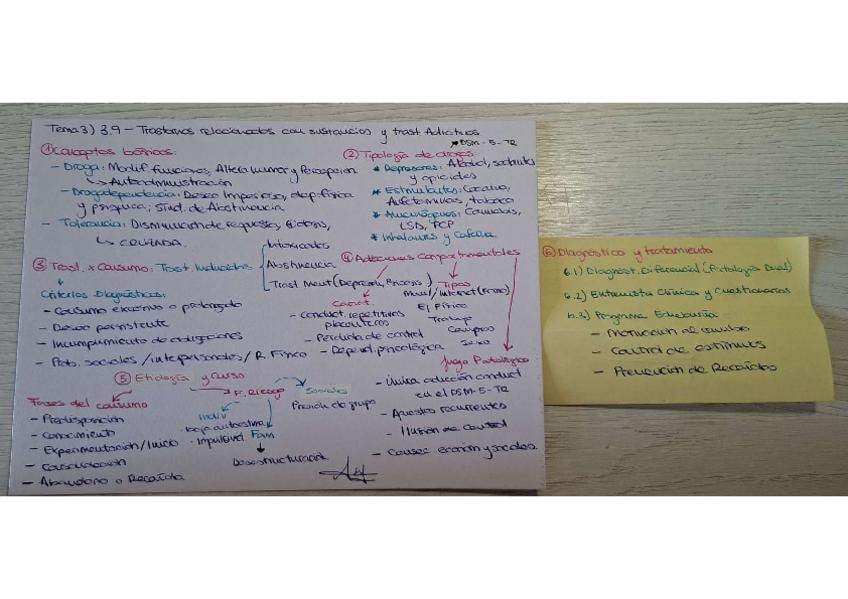 Tema 3) 3.9 - Trastornos relacionados con sustancias y trast. Adictivos
* DSM-5-TR
① Conceptos básicos:
- Droga: Modif. funciones, Altera humor y Percepción
↳ Autoadministración
- Drogodependencia: Deseo Imperioso, dep. física
y psíquica; Sínd. de Abstinencia
- Tolerancia: Disminución de respuestas, Efectos,
↳ CRUZADA.
② Tipología de drogas
* Depresores: Alcohol, sedantes
y opioides
* Estimulantes: Cocaína,
Anfetaminas, tabaco
* Alucinógenos: Cannabis,
LSD, PCP
* Inhalantes y Cafeína.
③ Trast. x Consumo: Trast. Inducidos
Intoxicación
Abstinencia
Trast Ment (Depresión, Psicosis)
Criterios Diagnósticos:
- Consumo excesivo o prolongado
- Deseo persistente
- Incumplimiento de obligaciones
- Prob. sociales / interpersonales / R. Físico
④ Adicciones Comportamentales
Caract.
- Conduct. repetitivas
placenteras
- Pérdida de control
- Depend. psicológica
Tipos
Móvil/Internet
Ej. Físico
Trabajo
Compras
Sexo
Juego Patológico
- Única adicción conduct
en el DSM-5-TR
- Apuestas recurrentes
- Ilusión de control
- Consec. económ y sociales.
⑤ Etiología y curso
Fases del consumo
- Predisposición
- Conocimiento
- Experimentación/Inicio
- Consolidación
- Abandono o Recaída
F. Riesgo
Indiv
· baja autoestima
· Impulsivid.
Fam
Desestructuración
Sociales
Presión de grupo
⑥ Diagnóstico y tratamiento
6.1) Diagnóst. Diferencial (Patología Dual)
6.2) Entrevista Clínica y Cuestionarios
6.3) Programa Echeburúa:
- Motivación al cambio
- Control de estímulos
- Prevención de Recaídas